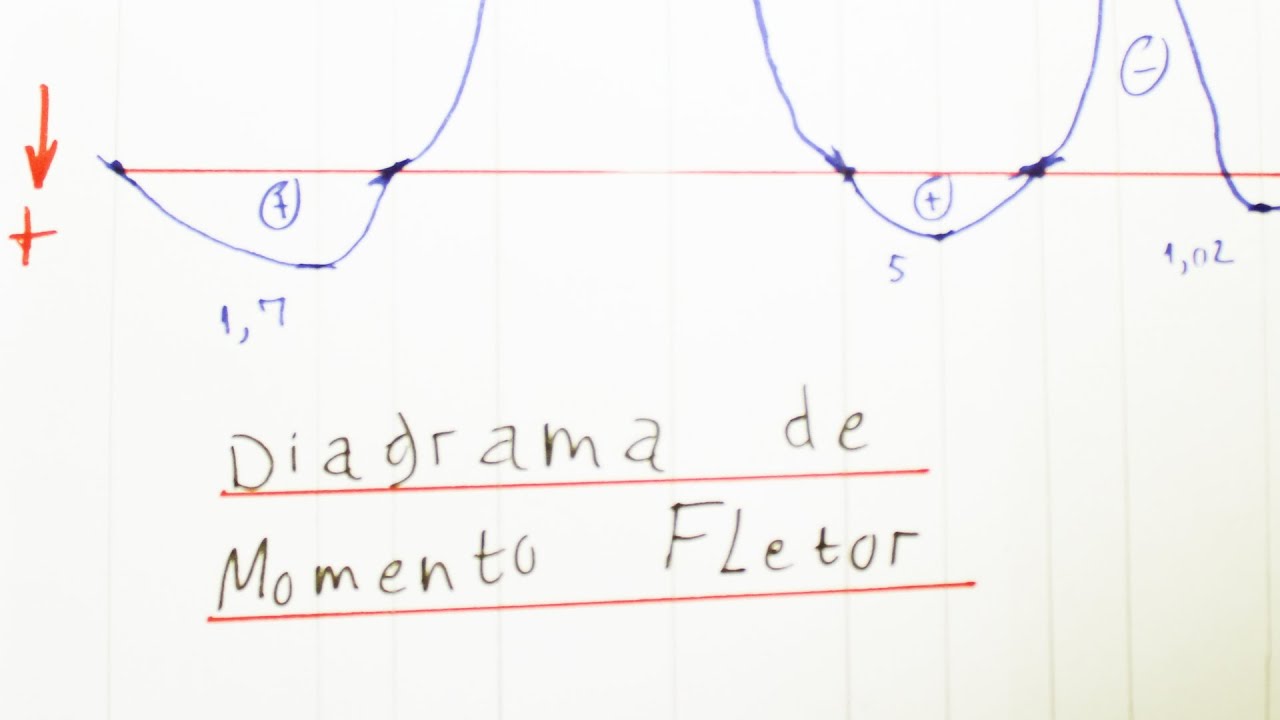 ⊖
+
⊕ ⊕
1,7 5 1,02
Diagrama de
Momento FLetor